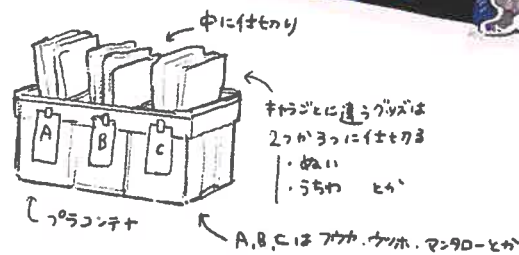 中に仕切り
A
B
C
キャラごとに違うグッズは
2つか3つに仕切る
・ぬい
・うちわ とか
プラコンテナ
A,B,Cは フウカ・ウツホ・マンタローとか